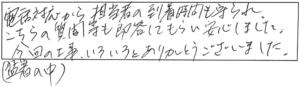 電話対応から担当者の到着時間も守られ、
こちらの質問等も即答してもらい安心しました。
今回の工事、いろいろとありがとうございました。
(猛暑の中)